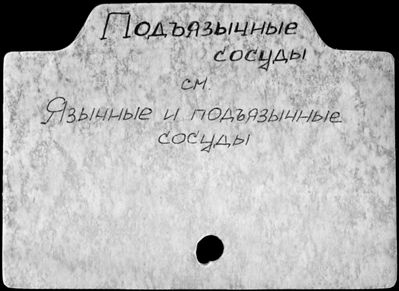 Подъязычные
сосуды
см.
Язычные и подъязычные
сосуды